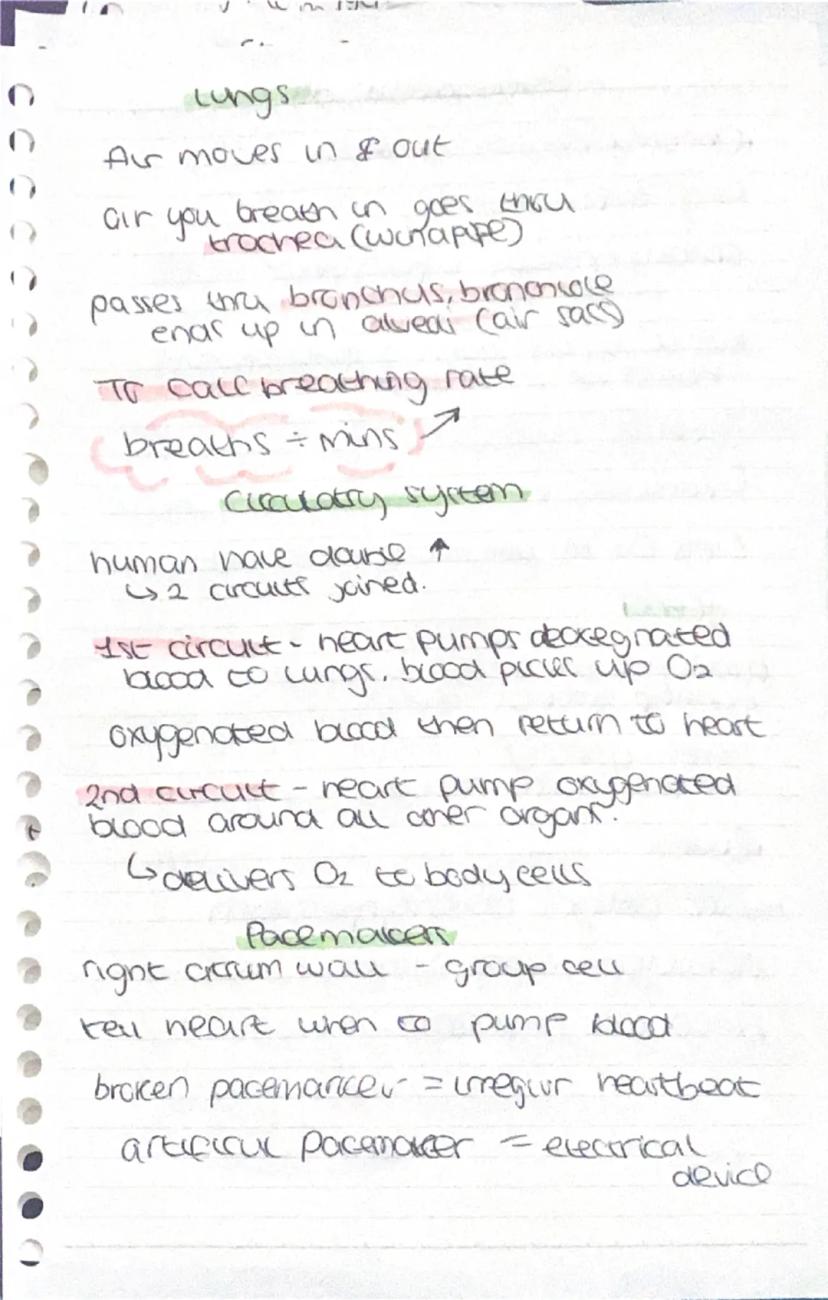 Lungs
Air moves in & out
air you breath in goes thru
trachea (windpipe)
passes thru bronchus, bronchiole
ends up in alveoli (air sacs)
To calc breathing rate
breaths ÷ mins ↗
Circulatry system
human have double ↑
↳ 2 circuits joined.
1st circuit - heart pumps deoxegnated
blood to lungs. blood picks up O₂
oxygenated blood then return to heart
2nd circuit - heart pump oxygenated
blood around all other organs.
↳ delivers O₂ to body cells
Pacemakers
right atrium wall - group cell
tell heart when to pump blood
broken pacemaker = irreglur heartbeat
pacemaker = electrical
device